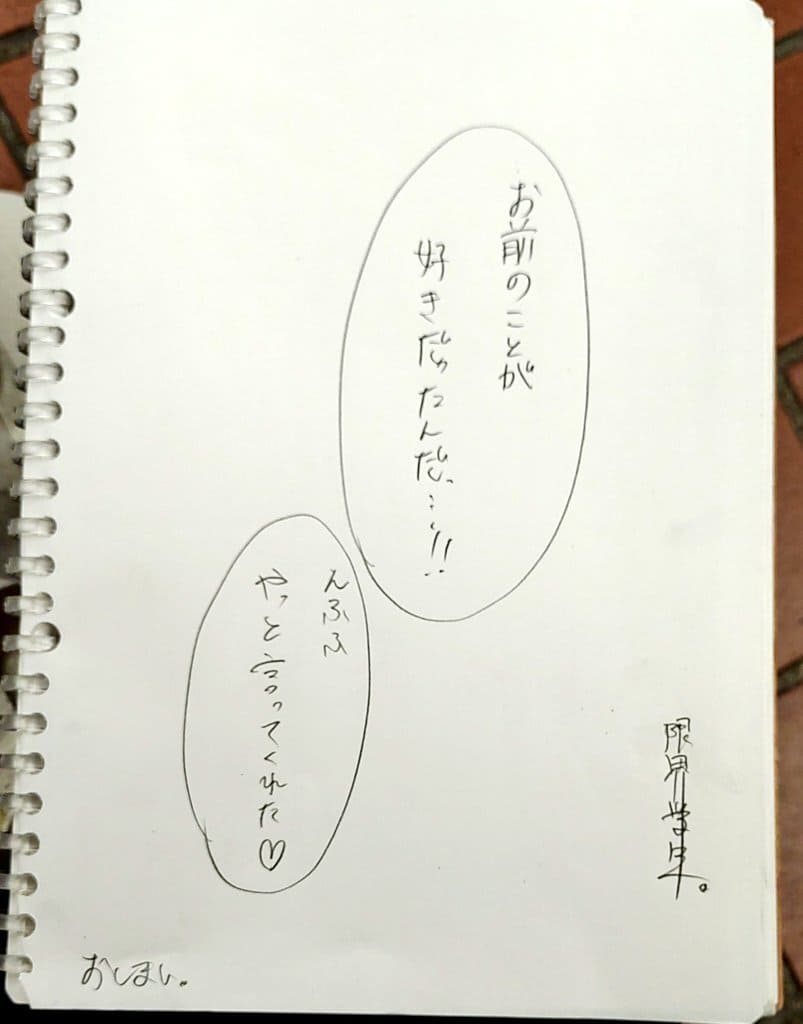 お前のことが
好きだったんだ…!!
んふふ
やっと言ってくれた♡
限界学果。
おしまい。